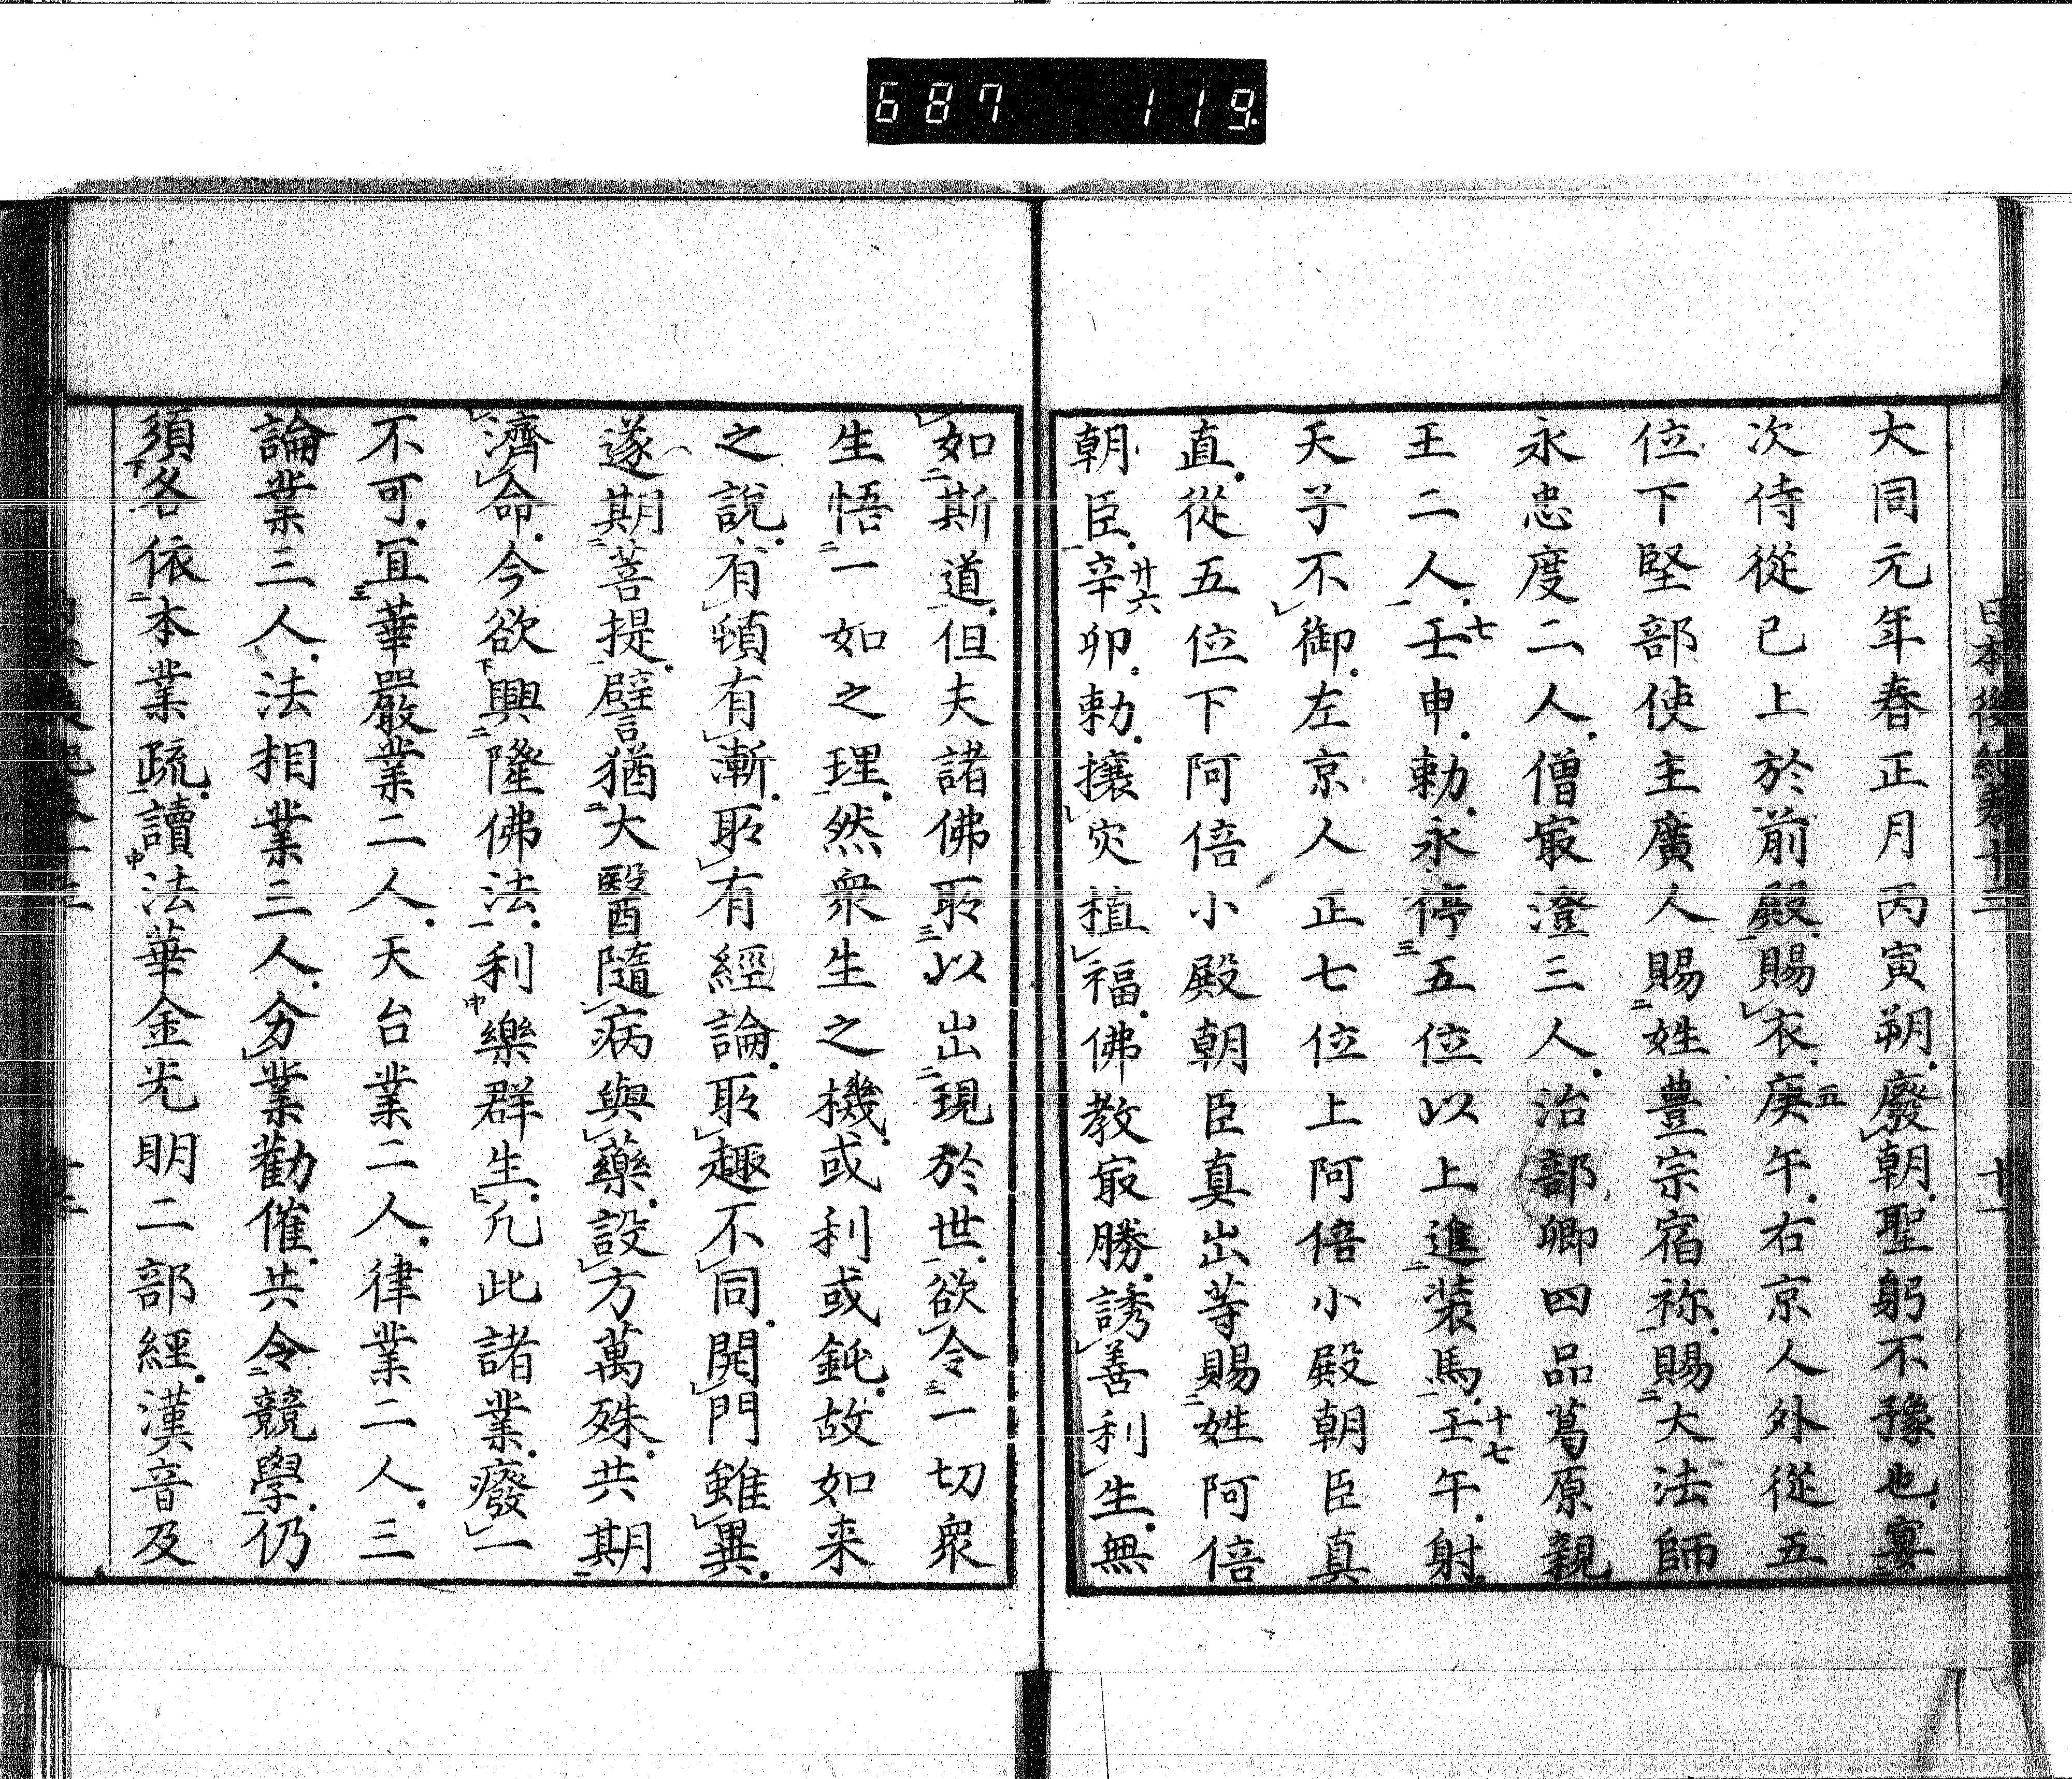 687 119
日本後紀卷十三 十一
大同元年春正月丙寅朔廢朝聖躬不豫也宴
次侍從已上於前殿賜衣庚午右京人外從五
位下堅部使主廣人賜姓豊宗宿祢賜大法師
永忠度二人僧㝡澄三人治部卿四品葛原親
王二人壬申勅永停五位以上進装馬壬午射
天子不御左京人正七位上阿倍小殿朝臣真
直從五位下阿倍小殿朝臣真出等賜姓阿倍
朝臣辛卯勅攘灾植福佛教㝡勝誘善利生無
如斯道但夫諸佛所以出現於世欲令一切衆
生悟一如之理然衆生之機或利或鈍故如来
之說有頓有漸所有經論所趣不同開門雖異
遂期菩提譬猶大醫隨病與藥設方萬殊共期
濟命今欲興隆佛法利樂群生凢此諸業廢一
不可宜華嚴業二人天台業二人律業二人三
論業三人法相業三人分業勸催共令競學仍
須各依本業疏讀法華金光明二部經漢音及